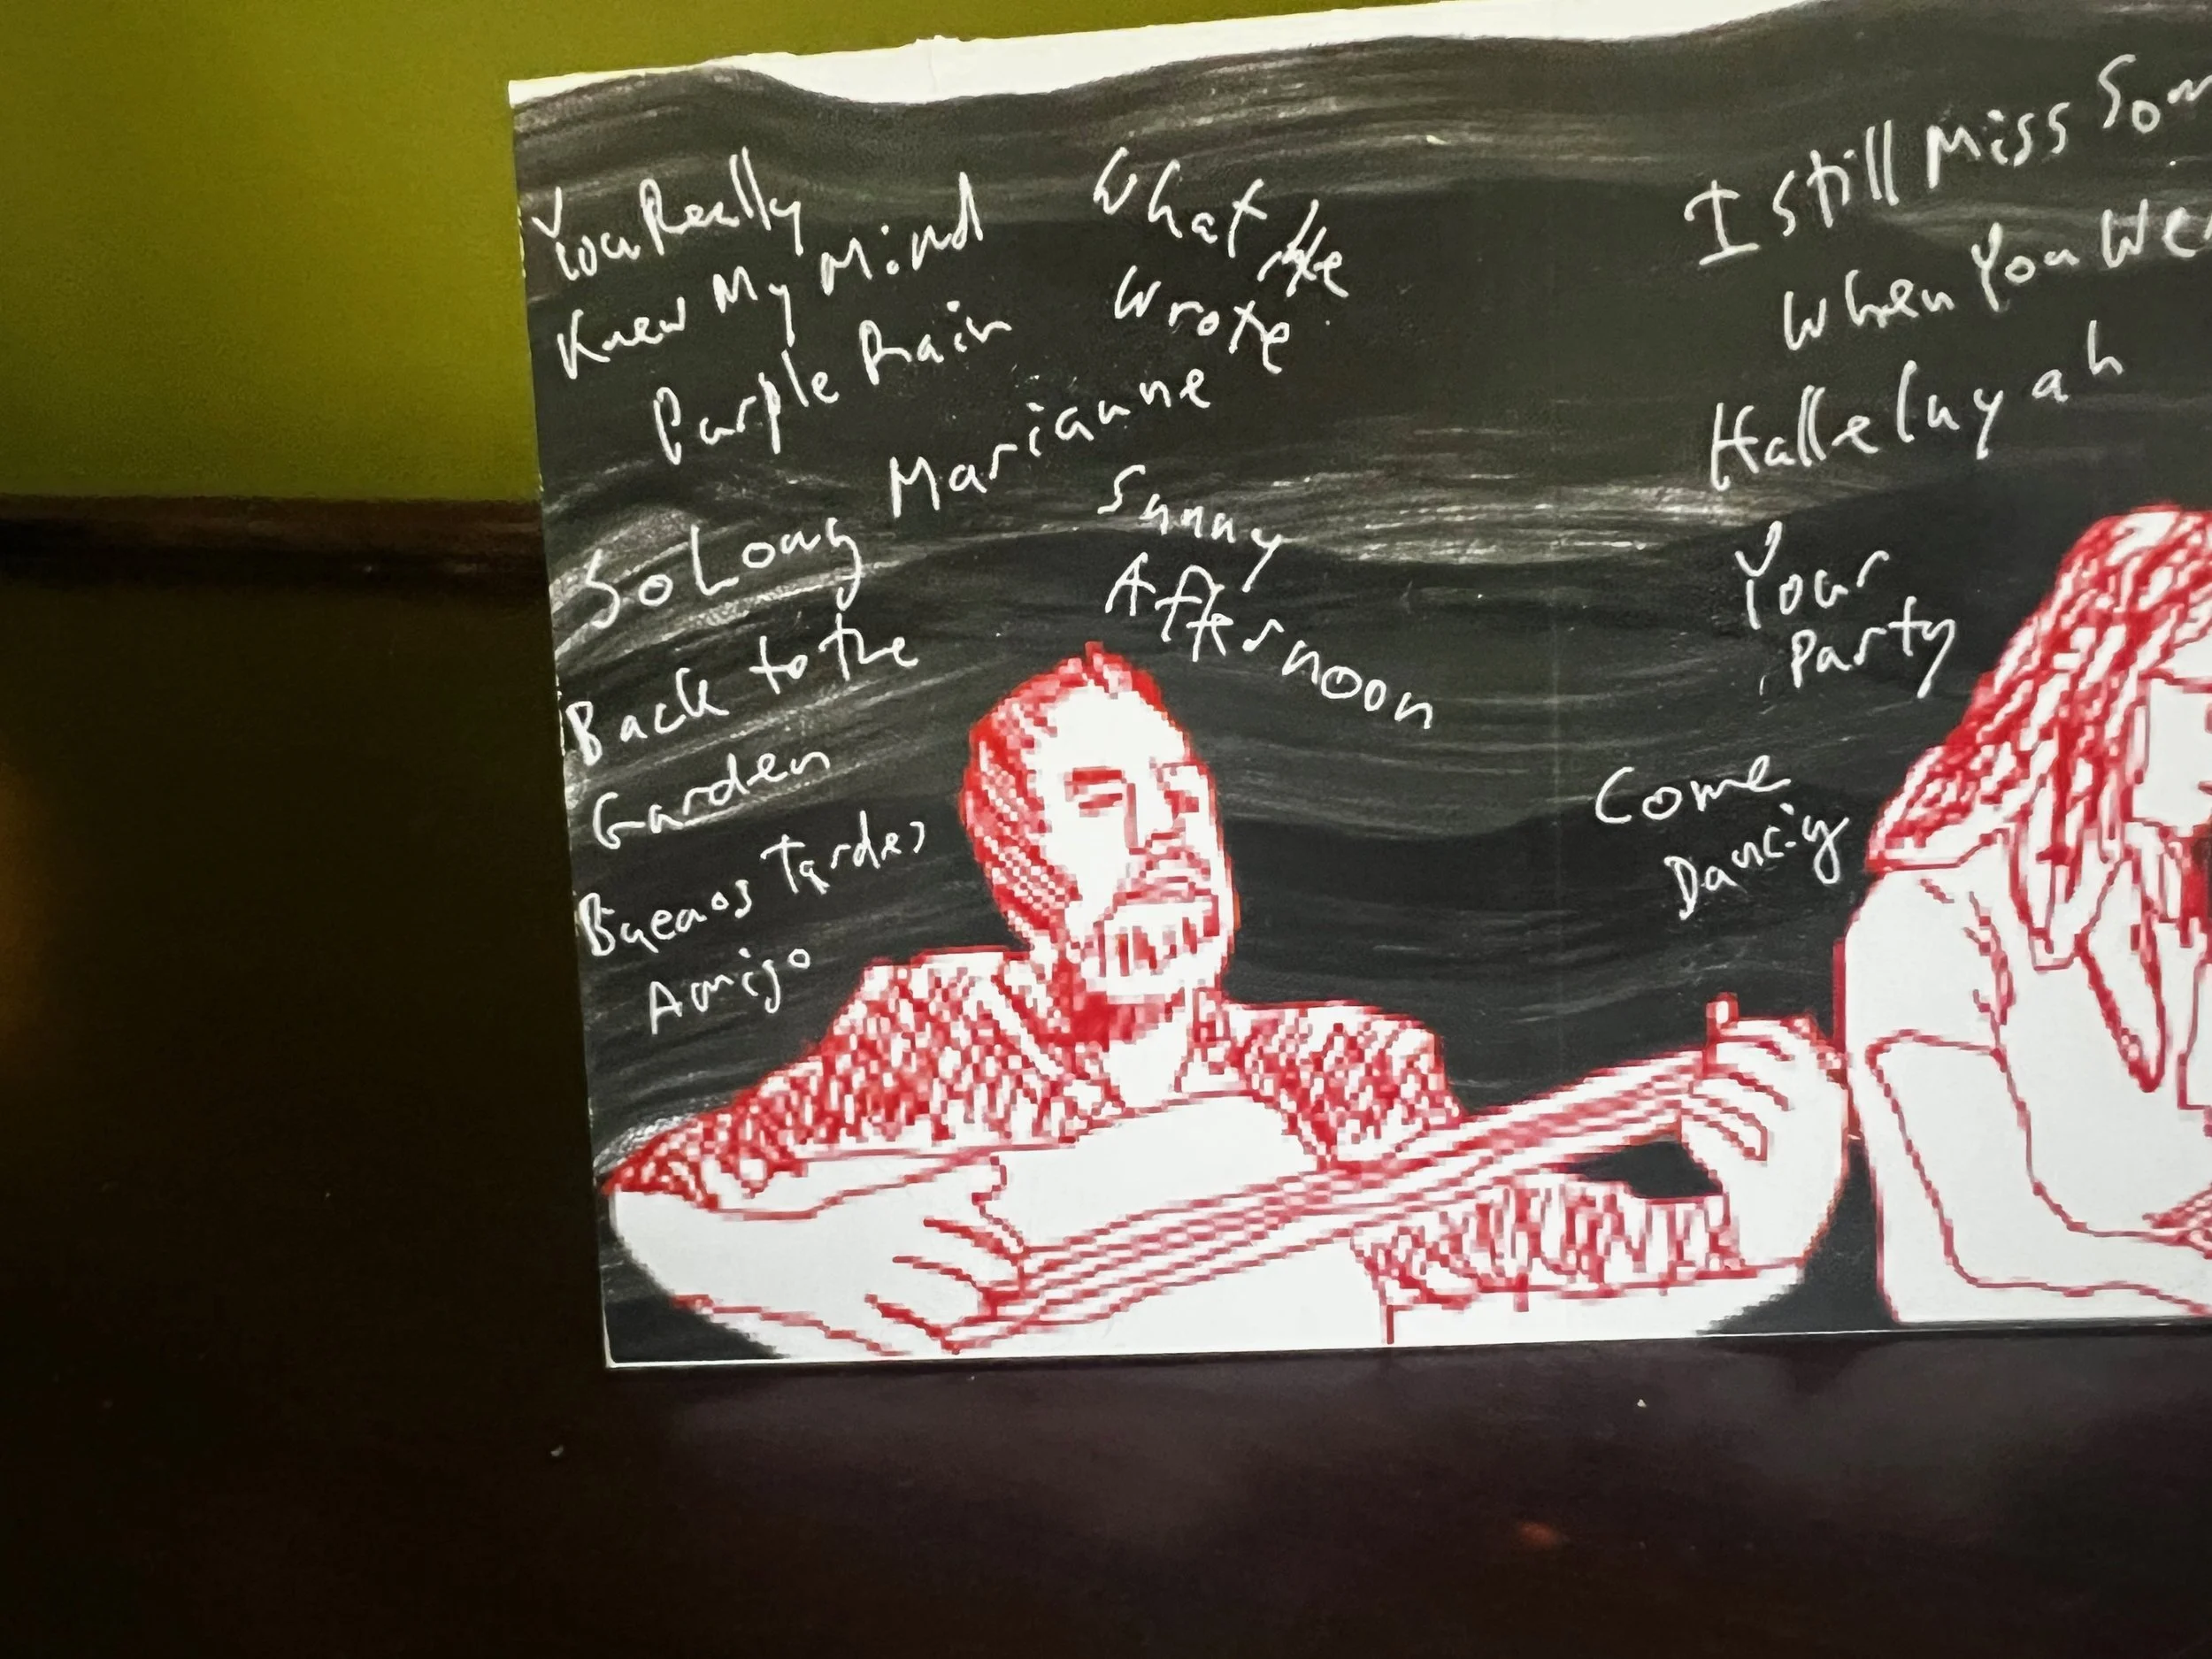 You Really
Knew My Mind
Purple Rain
So Long Marianne
Back to the
Garden
Buenos Tardes
Amigo
What He
Wrote
Sunny
Afternoon
I still Miss
When You
Halleluyah
Your
Party
Come
Dancig